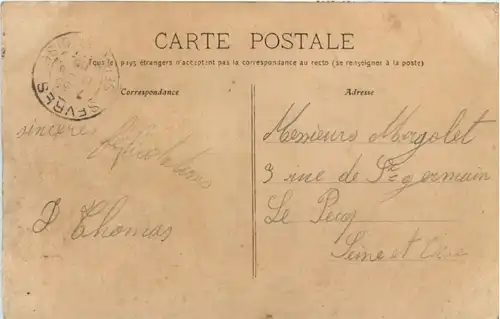 CARTE POSTALE
Tous les pays étrangers n'acceptent pas la correspondance au recto (se renseigner à la poste)
Correspondance
Adresse
SEVRES
sinceres
D Thomas
Messieurs Morgolet
3 rue de St germain
Le Pecq
Seine et Oise